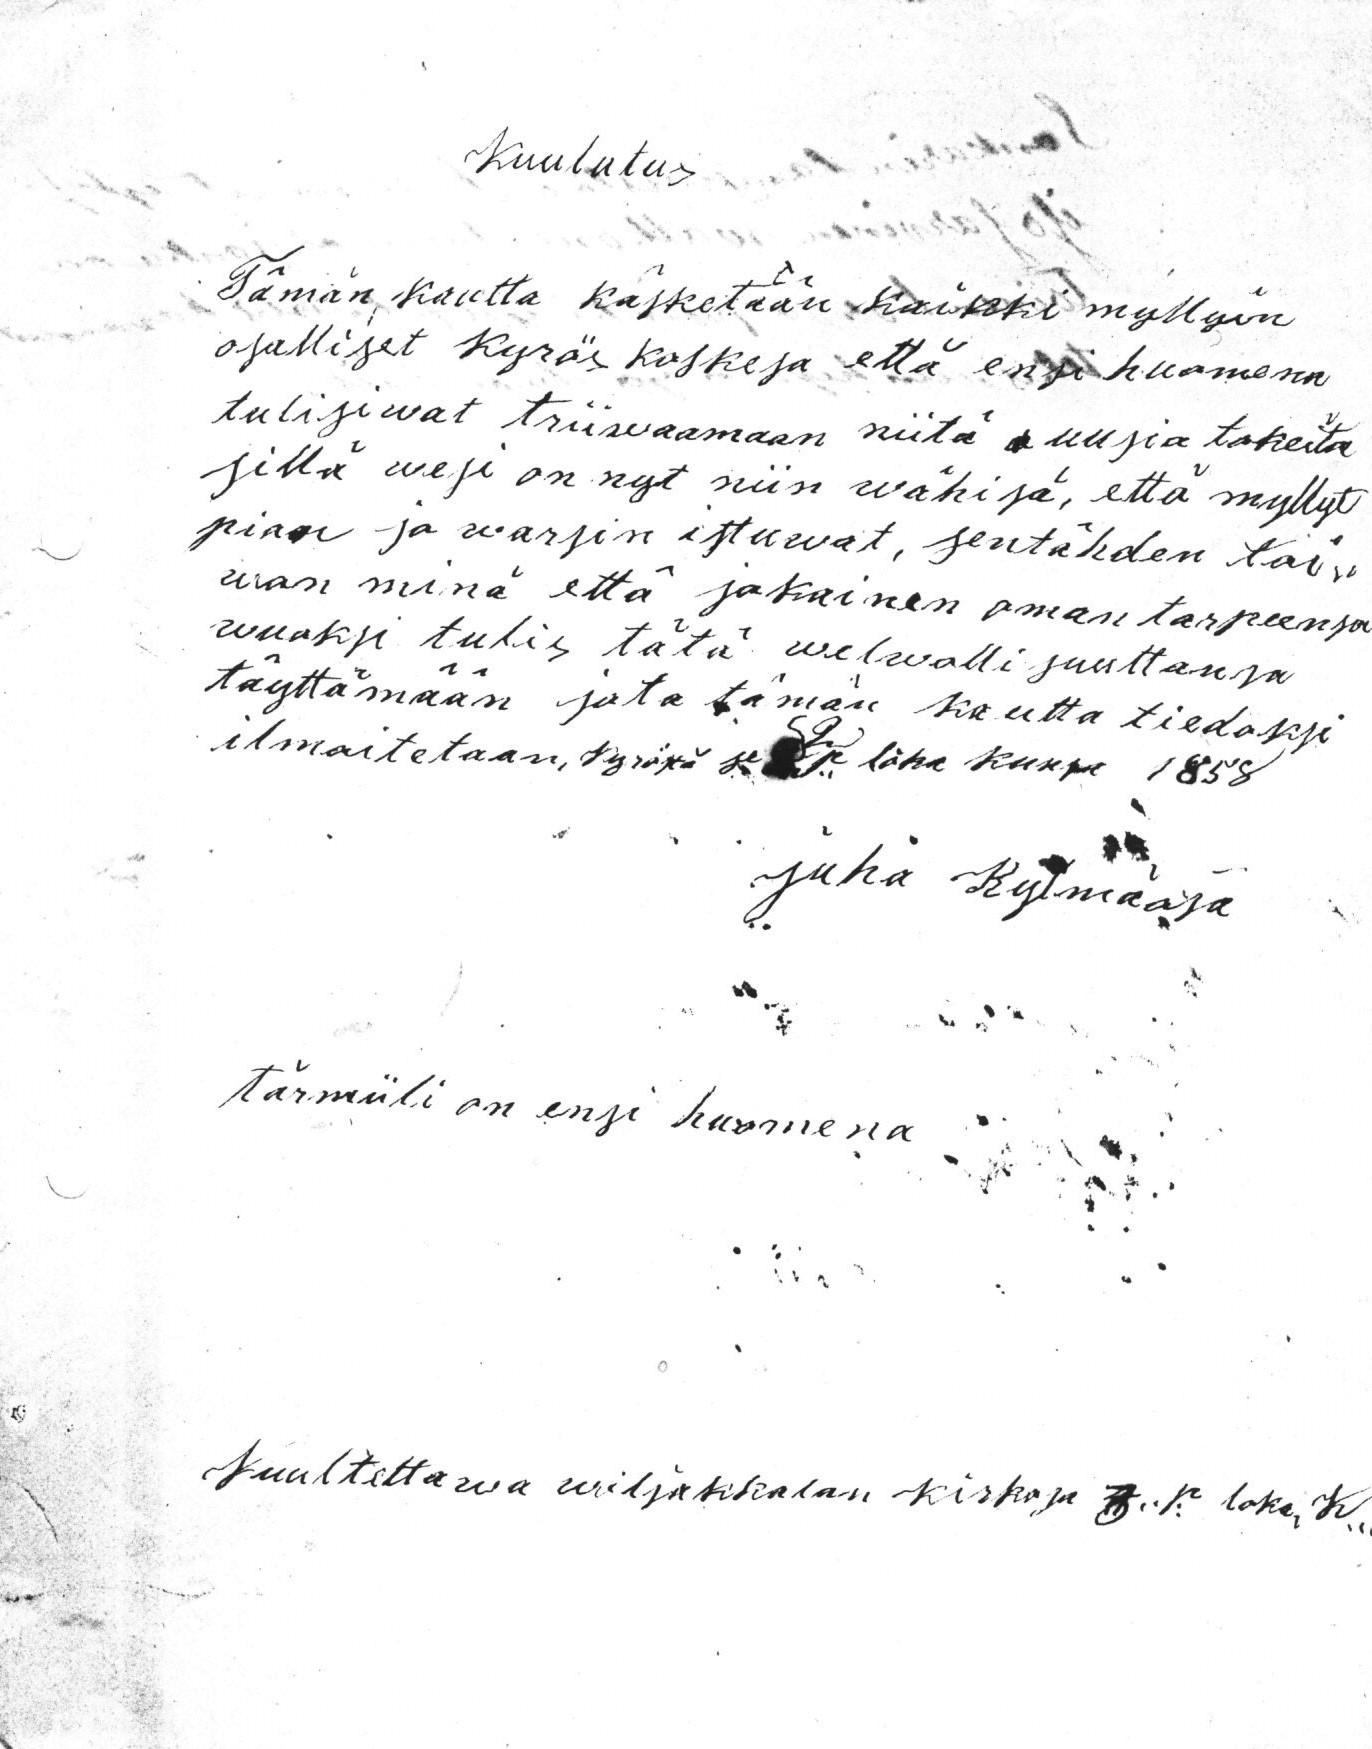 Kuulutus
Tämän kautta käsketään kaikki myllyin
osalliset Kyrös koskesa että ensi huomena
tulisiwat triiwaamaan niitä uusia tokeita
sillä wesi on nyt niin wähisä, että myllyt
pian ja warsin istuwat, sentähden toi„
won minä että jokainen oman tarpeensa
wuoksi tulis tätä welwollisuuttansa
täyttämään jota tämän kautta tiedoksi
ilmoitetaan, Kyrösä se 2 p: loka kuusa 1858
juha Kylmäoja
tärmiili on ensi huomena
Kuultettawa wiljakkalan Kirkosa 3 „ p: loka, K„